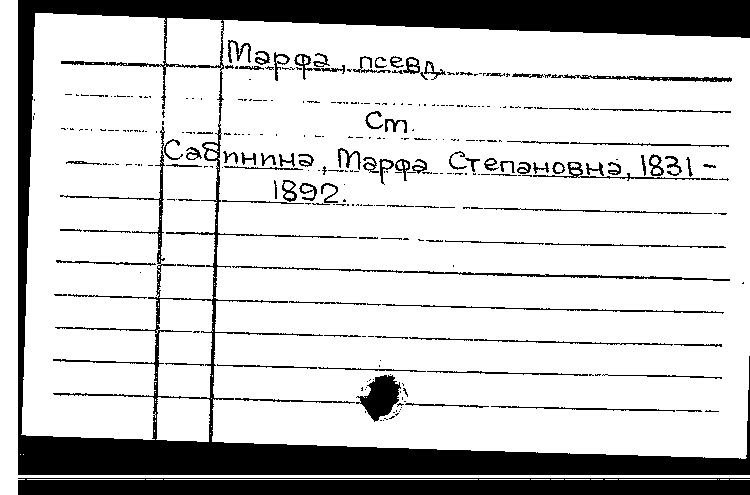 Марфа, псевд.
Ст.
Сабинина, Марфа Степановна, 1831 -
1892.